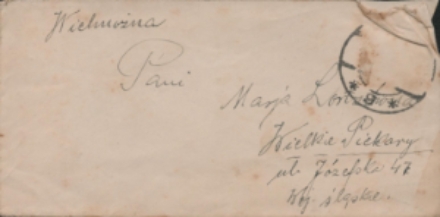 Wielmożna
Pani
Marja
Wielkie Piekary
ul. Józefska 47
Woj. śląskie.
* B *